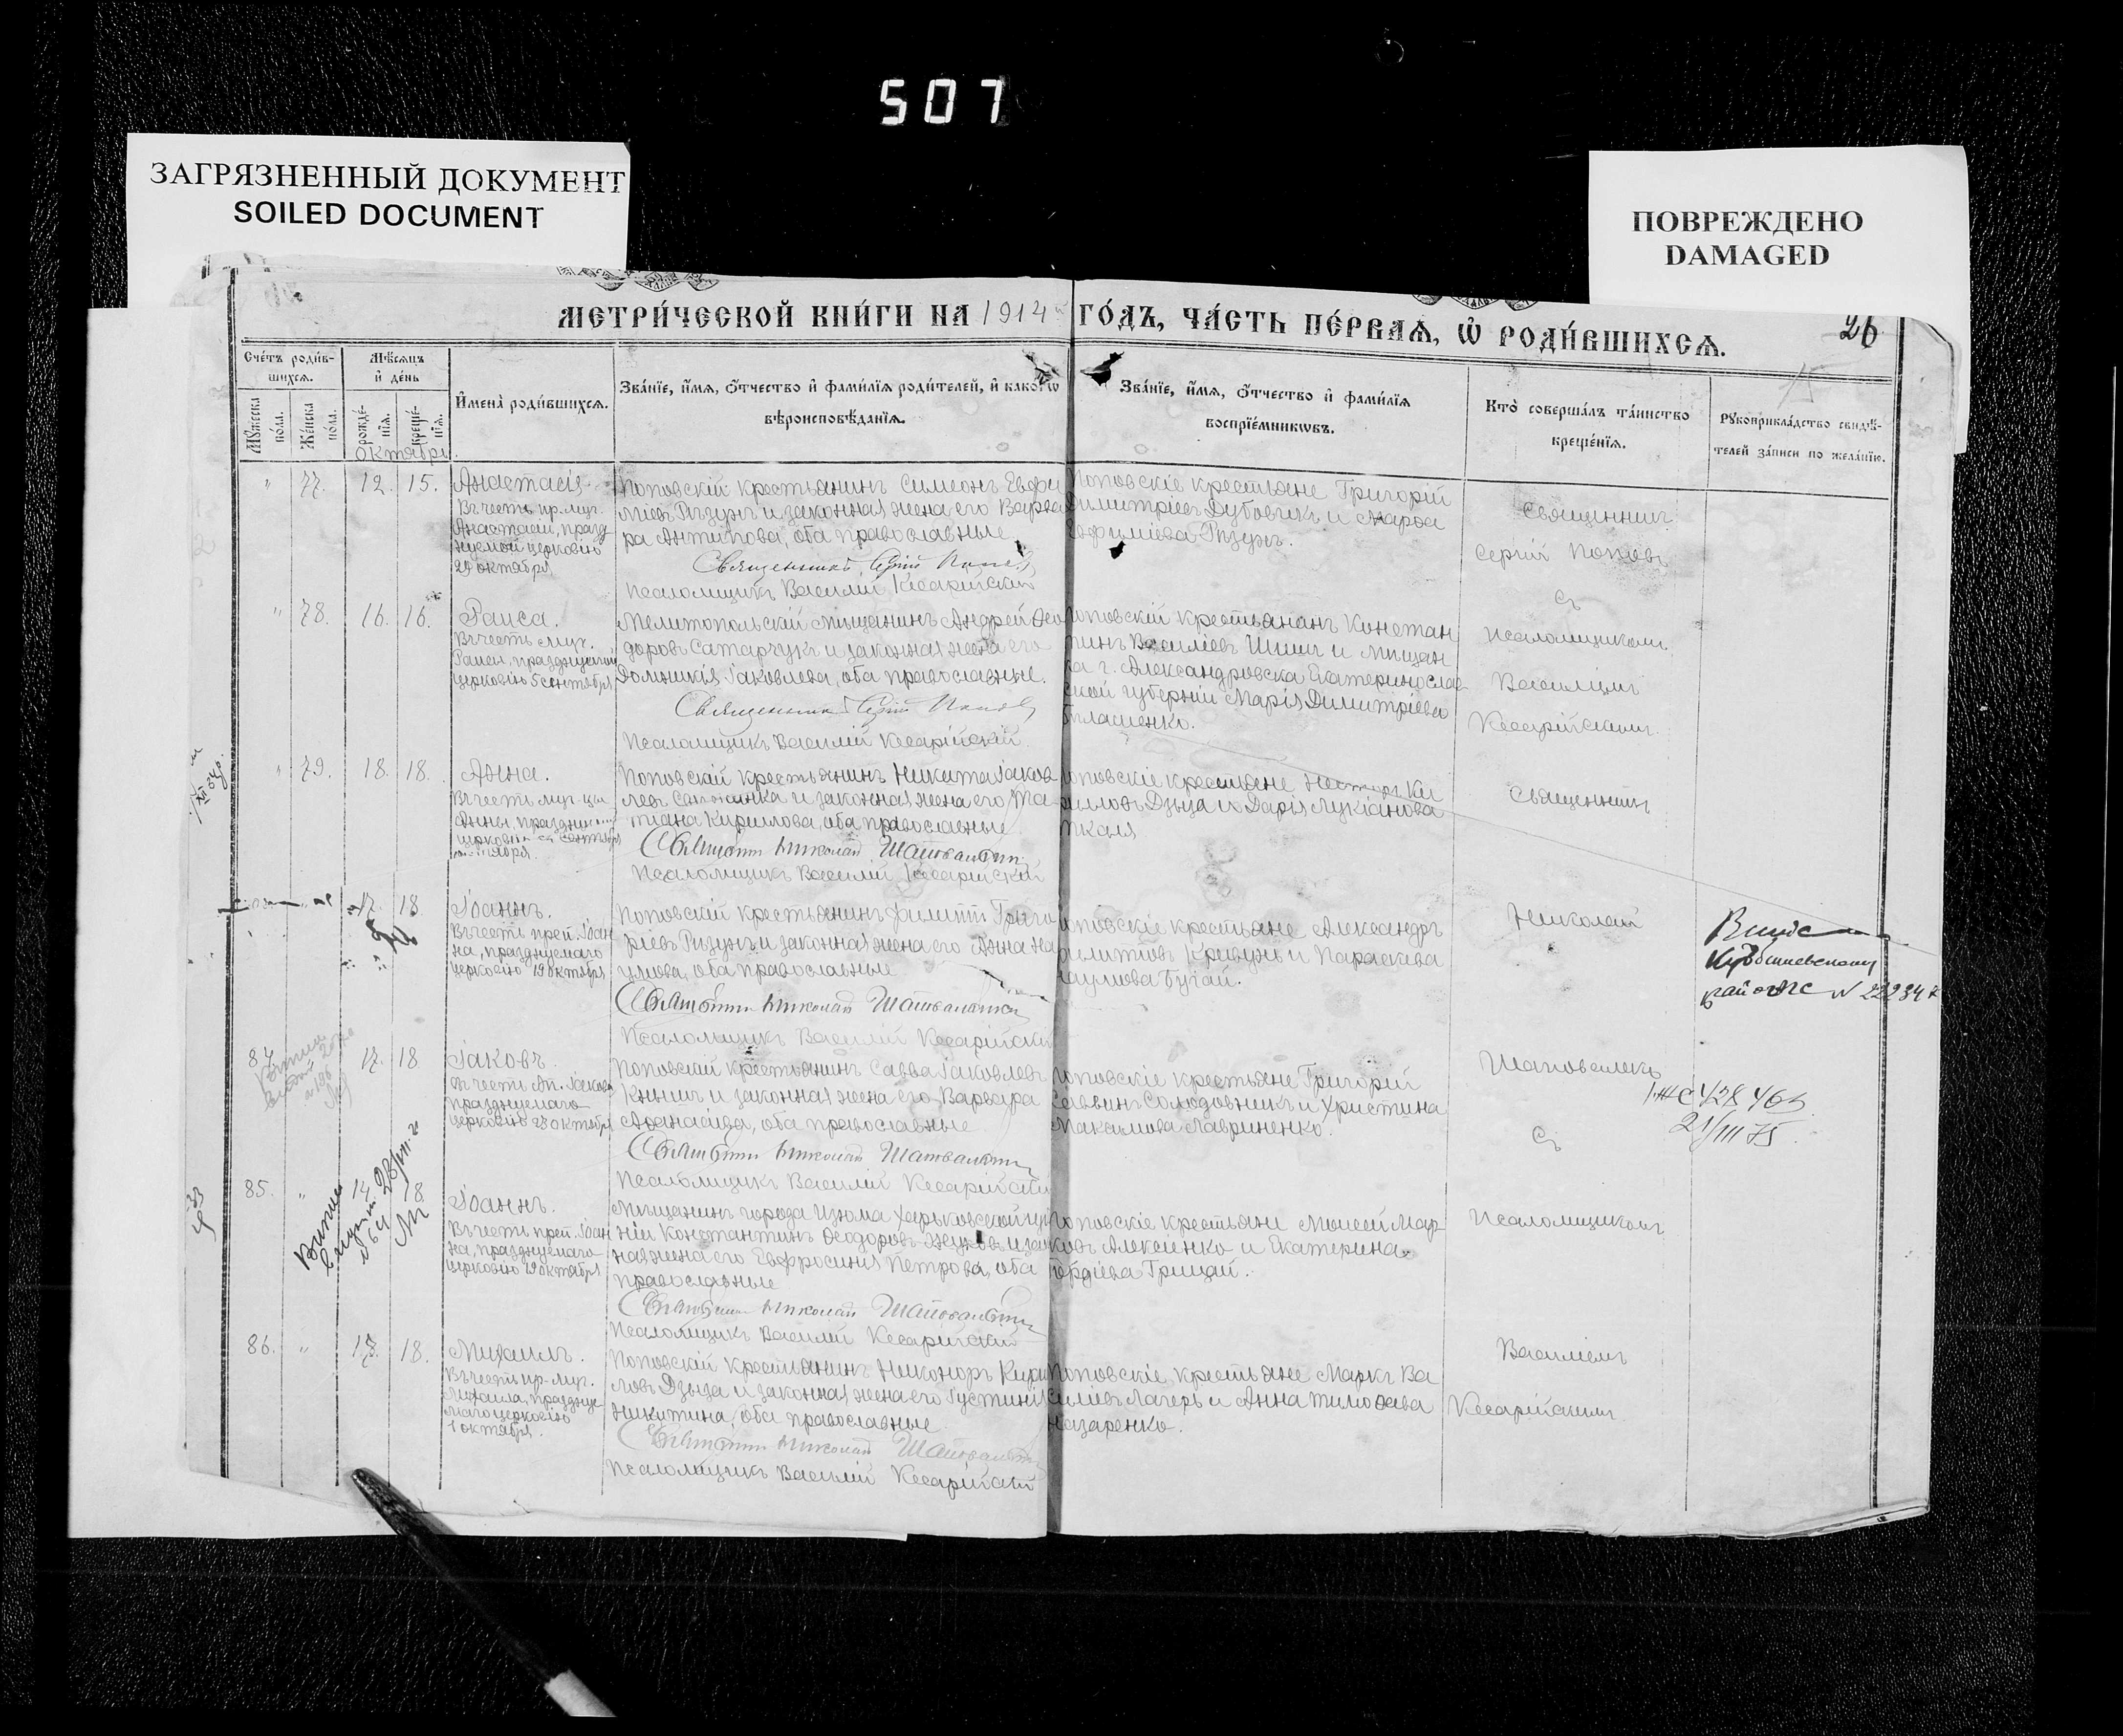 507
ЗАГРЯЗНЕННЫЙ ДОКУМЕНТ
SOILED DOCUMENT
ПОВРЕЖДЕНО
DAMAGED
МЕТРИ́ЧЕСКОЙ КНИ́ГИ НА 1914 ГО́ДЪ, ЧА́СТЬ ПЕ́РВАЯ, Ѡ РОДИ́ВШИХСЯ.
26
15
Сче́тъ роди́в-
шихся.
Мѣ́сяцъ
и де́нь
Мꙋ́жеска
по́ла.
Же́нска
по́ла.
рожде́-
нїя.
креще́-
нїя.
Имена̀ роди́вшихся.
Зва́нїе, и́мя, о́тчество и фами́лїя роди́телей, и како́гѡ
вѣроисповѣ́данїя.
Зва́нїе, и́мя, о́тчество и фами́лїя
воспрїе́мникѡвъ.
Кто̀ соверша́лъ та́инство
креще́нїя.
Рꙋкоприкла́дство свидѣ́-
телей за́писи по жела́нїю.
Октябрь
" 77. 12. 15. Анастасія
Въ честь пр. муч.
Анастасіи, празд
нуемой церковію
29 октября
Поповскій крестьянинъ Симеонъ Евфи
міевъ Ризунъ и законная жена его Варва
ра Антипова, оба православные
Священникъ Сергій Поповъ
Псаломщикъ Василій Кесарійскій
Поповскіе крестьяне Григорій
Димитріевъ Дубовикъ и Марѳа
Евфиміева Ризунъ.
Священникъ
Сергій Поповъ
съ
Псаломщикомъ
Василіемъ
Кесарійскимъ.
" 78. 16. 16. Раиса.
Въ честь муч.
Раисы, празднуемой
церковію 5 сентября
Мелитопольскій мѣщанинъ Андрей Ѳео
доровъ Сатарчукъ и законная жена его
Домникія Іаковлева, оба православные.
Священникъ Сергій Поповъ
Псаломщикъ Василій Кесарійскій
Поповскій крестьянинъ Констан
тинъ Василіевъ Шишъ и мѣщан
ка г. Александровска Екатеринослав
ской губерніи Марія Димитріева
" 79. 18. 18. Анна.
Въ честь муч.
Анны, празднуемой
церковію
Поповскій крестьянинъ Никита Іаков
левъ и законная жена его Та
тіана Кириллова, оба православные
Священникъ Николай Шаповаленко
Псаломщикъ Василій Кесарійскій
Поповскіе крестьяне Несторъ Ки
рилловъ Дзыза и Дарія Лукіанова
Ткаля
Священникъ
17. 18 Іоаннъ.
Въ честь преп. Іоан
на, празднуемаго
церковію 19 октября
Поповскій крестьянинъ Филиппъ Григо
ріевъ Ризунъ и законная жена его Анна На
умова, оба православные
Священникъ Николай Шаповаленко
Псаломщикъ Василій Кесарійскій
Поповскіе крестьяне Александръ
Филипповъ Кривунъ и Параскева
Наумова Бугай.
Николай
Куйбышевскому
район ЗАГС N 22234
84. 17. 18 Іаковъ.
Въ честь Ап. Іакова
празднуемаго
церковію 23 октября
Поповскій крестьянинъ Савва Іаковлевъ
Книшъ и законная жена его Варвара
Аѳанасіева, оба православные
Священникъ Николай Шаповаленко
Псаломщикъ Василій Кесарійскій
Поповскіе крестьяне Григорій
Саввинъ Солодовникъ и Христина
Максимова Лавриненко.
Шаповаленко
съ
21/III 75
85. " 14. 18 Іоаннъ.
Въ честь преп. Іоан
на, празднуемаго
церковію 19 октября
Мѣщанинъ города Изюма Харьковской губер
ніи Константинъ Ѳеодоровъ Жуковъ и закон
ная жена его Евфросинія Петрова, оба
православные
Священникъ Николай Шаповаленко
Псаломщикъ Василій Кесарійскій
Поповскіе крестьяне Моисей Мар
ковъ Алексіенко и Екатерина
Гордіева Грицай.
Псаломщикомъ
86. " 18. 18. Михаилъ.
Въ честь пр. муч.
Михаила, праздnуе
маго церковію
1 октября.
Поповскій крестьянинъ Никоноръ Кирил
ловъ Дзыза и законная жена его Іустинія
Никитина, оба православные
Священникъ Николай Шаповаленко
Псаломщикъ Василій Кесарійскій
Поповскіе крестьяне Маркъ Ва
силіевъ Лагерь и Анна Тимоѳеева
Назаренко.
Василіемъ
Кесарійскимъ